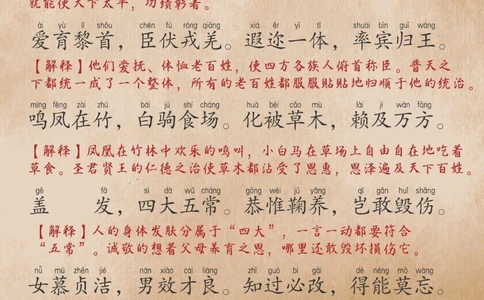 就能使天下太平，功绩彰著。
ài yù lí shǒu chén fú róng qiāng xiá ěr yī tǐ shuài bīn guī wáng
爱育黎首，臣伏戎羌。遐迩一体，率宾归王。
【解释】他们爱抚、体恤老百姓，使四方各族人俯首称臣。普天之
下都统一成了一个整体，所有的老百姓都服服贴贴地归顺于他的统治。
míng fèng zài zhú bái jū shí chǎng huà bèi cǎo mù lài jí wàn fāng
鸣凤在竹，白驹食场。化被草木，赖及万方。
【解释】凤凰在竹林中欢乐的鸣叫，小白马在草场上自由自在地吃着
草食。圣君贤王的仁德之治使草木都沾受了恩惠，恩泽遍及天下百姓。
gě fà sì dà wǔ cháng gōng wéi jū yǎng qǐ gǎn huǐ shāng
盖 发，四大五常。恭惟鞠养，岂敢毁伤。
【解释】人的身体发肤分属于“四大”，一言一动都要符合
“五常”。诚敬的想着父母养育之恩，哪里还敢毁坏损伤它。
nǚ mù zhēn jié nán xiào cái liáng zhī guò bì gǎi dé néng mò wàng
女慕贞洁，男效才良。知过必改，得能莫忘。